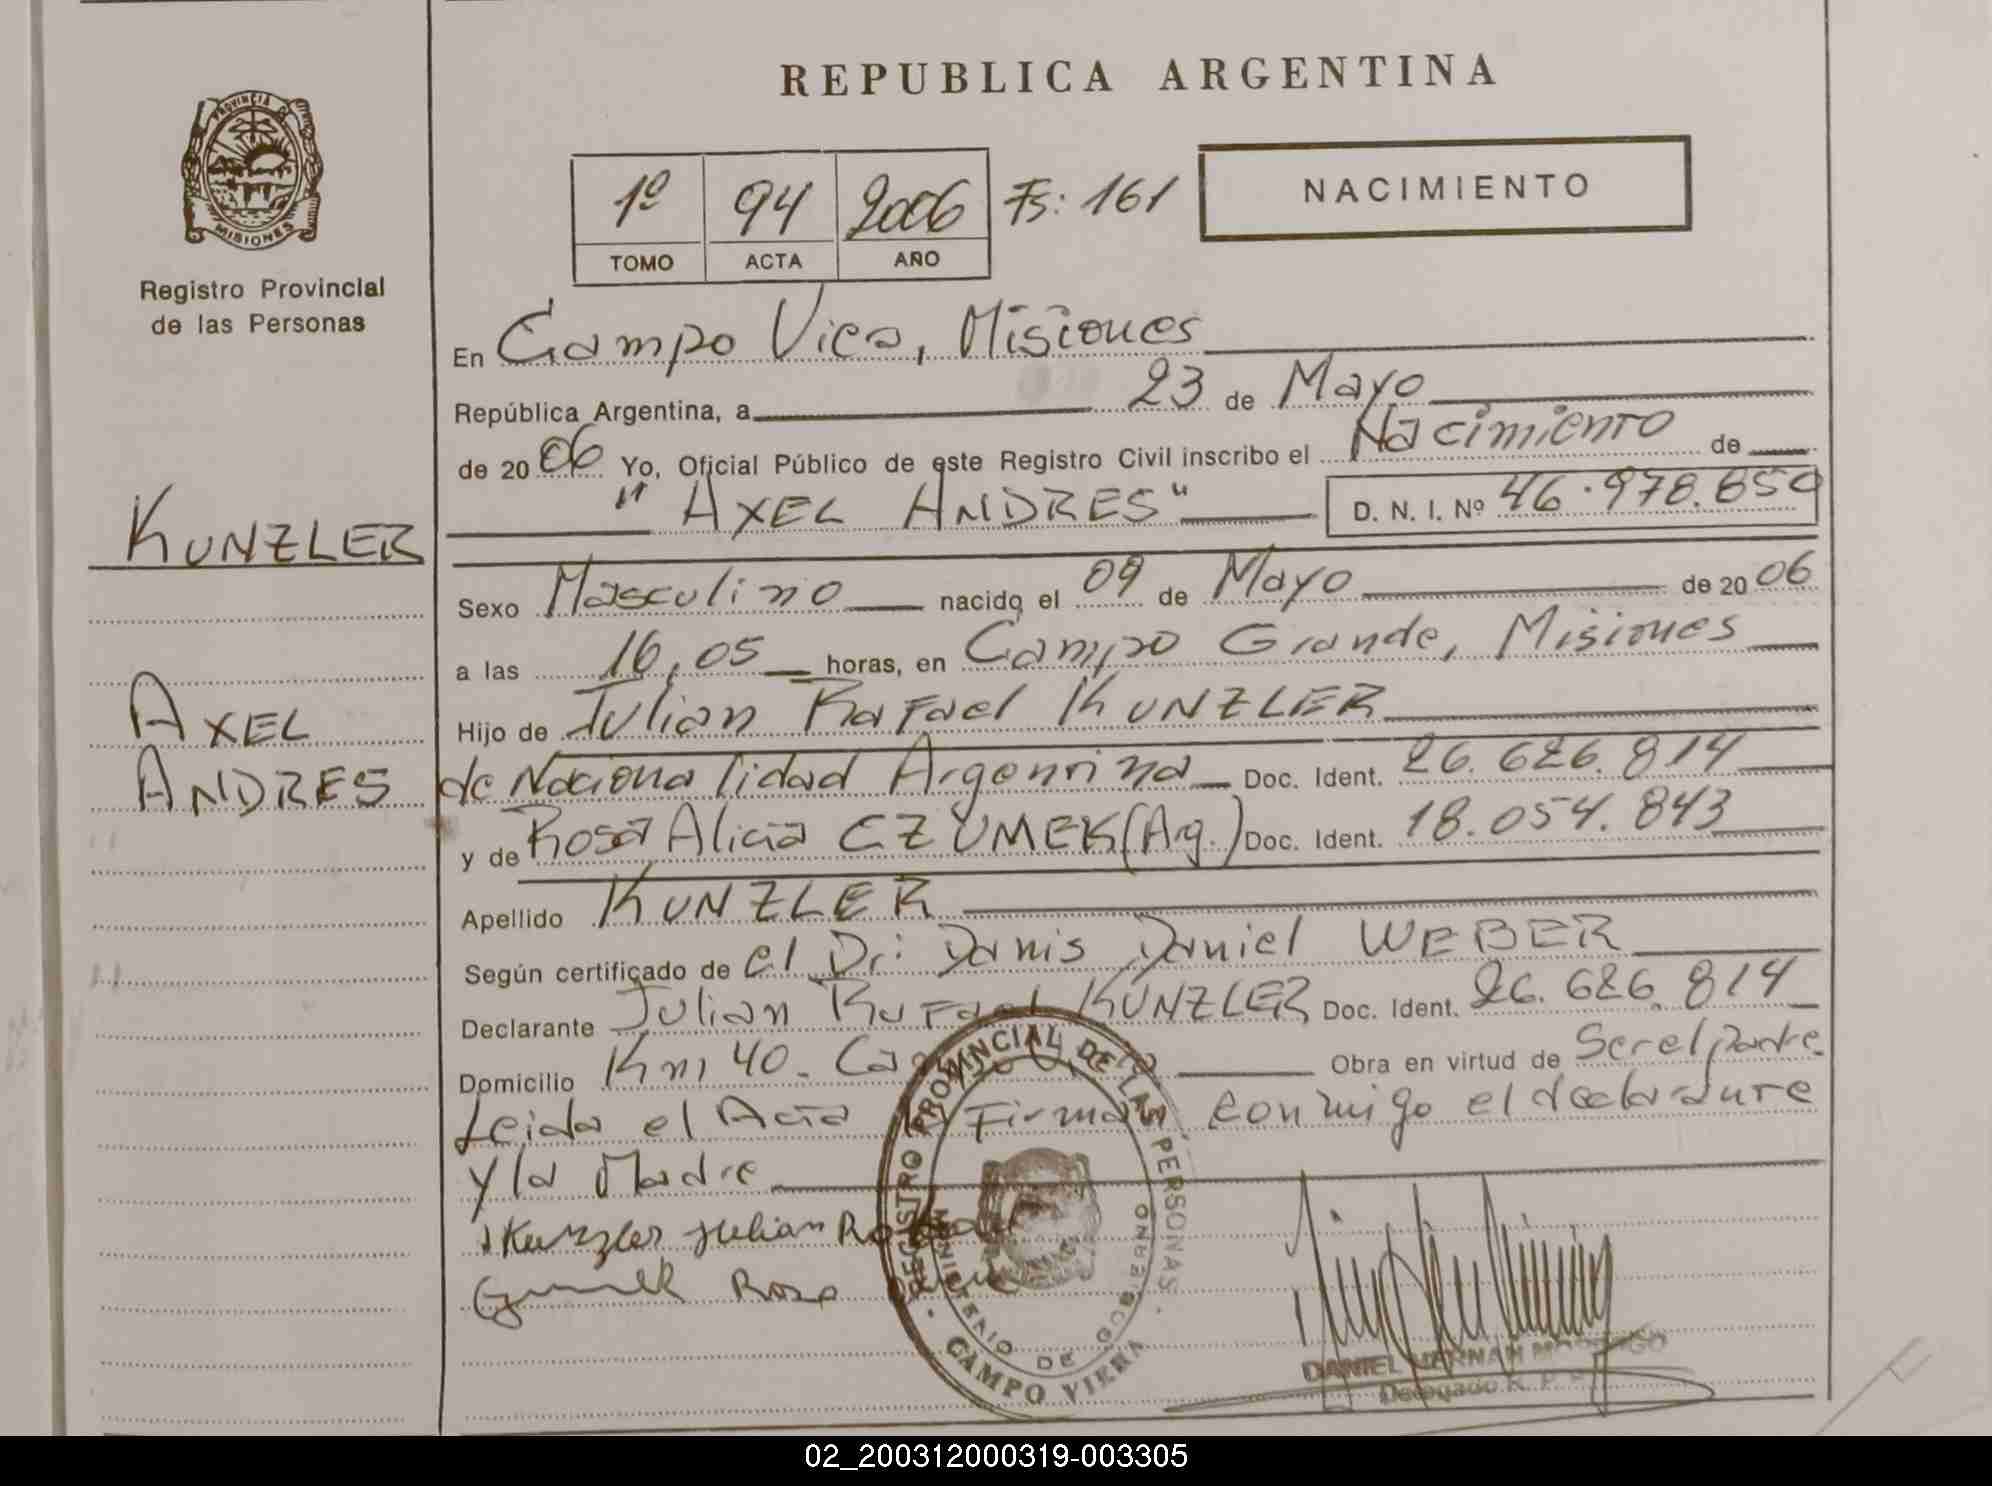 REPUBLICA ARGENTINA
PROVINCIA DE
MISIONES
Registro Provincial
de las Personas
1º 94 2006 Fs: 161
TOMO ACTA AÑO
NACIMIENTO
En Campo Viera, Misiones
República Argentina, a 23 de Mayo
de 2006 Yo, Oficial Público de este Registro Civil inscribo el Nacimiento de
" AXEL ANDRES" D. N. I. Nº 46.978.850
KUNZLER
Sexo Masculino nacido el 09 de Mayo de 2006
a las 16,05 horas, en Campo Grande, Misiones
AXEL
Hijo de Julian Rafael KUNZLER
ANDRES
de Nacionalidad Argentina Doc. Ident. 26.626.814
y de Rosa Alicia CZUMEK (Arg.) Doc. Ident. 18.054.843
Apellido KUNZLER
Según certificado de el Dr: Danis Daniel WEBER
Declarante Julian Rafael KUNZLER Doc. Ident. 26.626.814
Domicilio Km 40. Obra en virtud de Ser el padre
Leida el Acta la Firman conmigo el declarante
y la Madre
Kunzler Julian Rafael
Rosa
REGISTRO PROVINCIAL DE LAS PERSONAS
MINISTERIO DE GOBIERNO
CAMPO VIERA
DANIEL HERNAN
Delegado R. P. P.
02_200312000319-003305